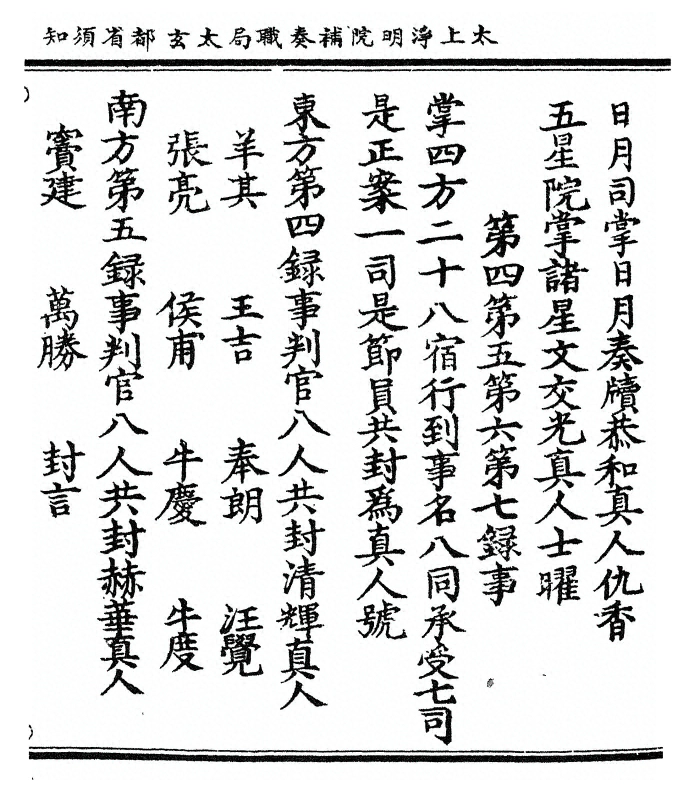 太上淨明院補奏職局太玄都省須知
日月司掌日月奏牘恭和真人仇香
五星院掌諸星文交光真人士曜
第四第五第六第七録事
掌四方二十八宿行到事名八同承受七司
是正案一司是節員共封爲真人號
東方第四録事判官八人共封清輝真人
羊其 王吉 奉朗 汪覺
張亮 侯甫 牛慶 牛度
南方第五録事判官八人共封赫華真人
竇建 萬勝 封言